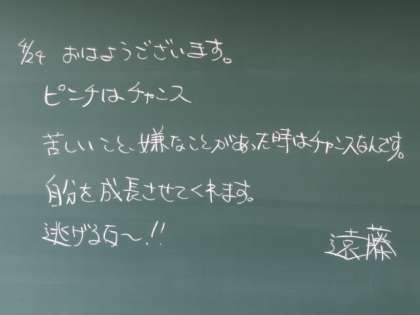 4/24 おはようございます。
ピンチはチャンス
苦しいこと、嫌なことがあった時はチャンスなんです。
自分を成長させてくれます。
逃げるな〜!!
遠藤